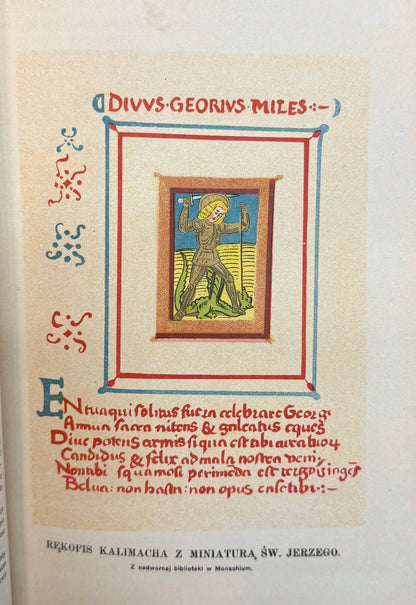 DIVVS·GEORIVS MILES:~
ENtuaqui solitus fuera celebrare Georgi
Annua sacra nitens & galeatus eques
Dive potens armis siqua est tibi
Candidus & felix ad mala nostra veni
Nontibi squamosi perimeda est
Belua: non hasta: non opus ense tibi:~
RĘKOPIS KALIMACHA Z MINIATURĄ ŚW. JERZEGO.
Z nadwornej biblioteki w Monachium.